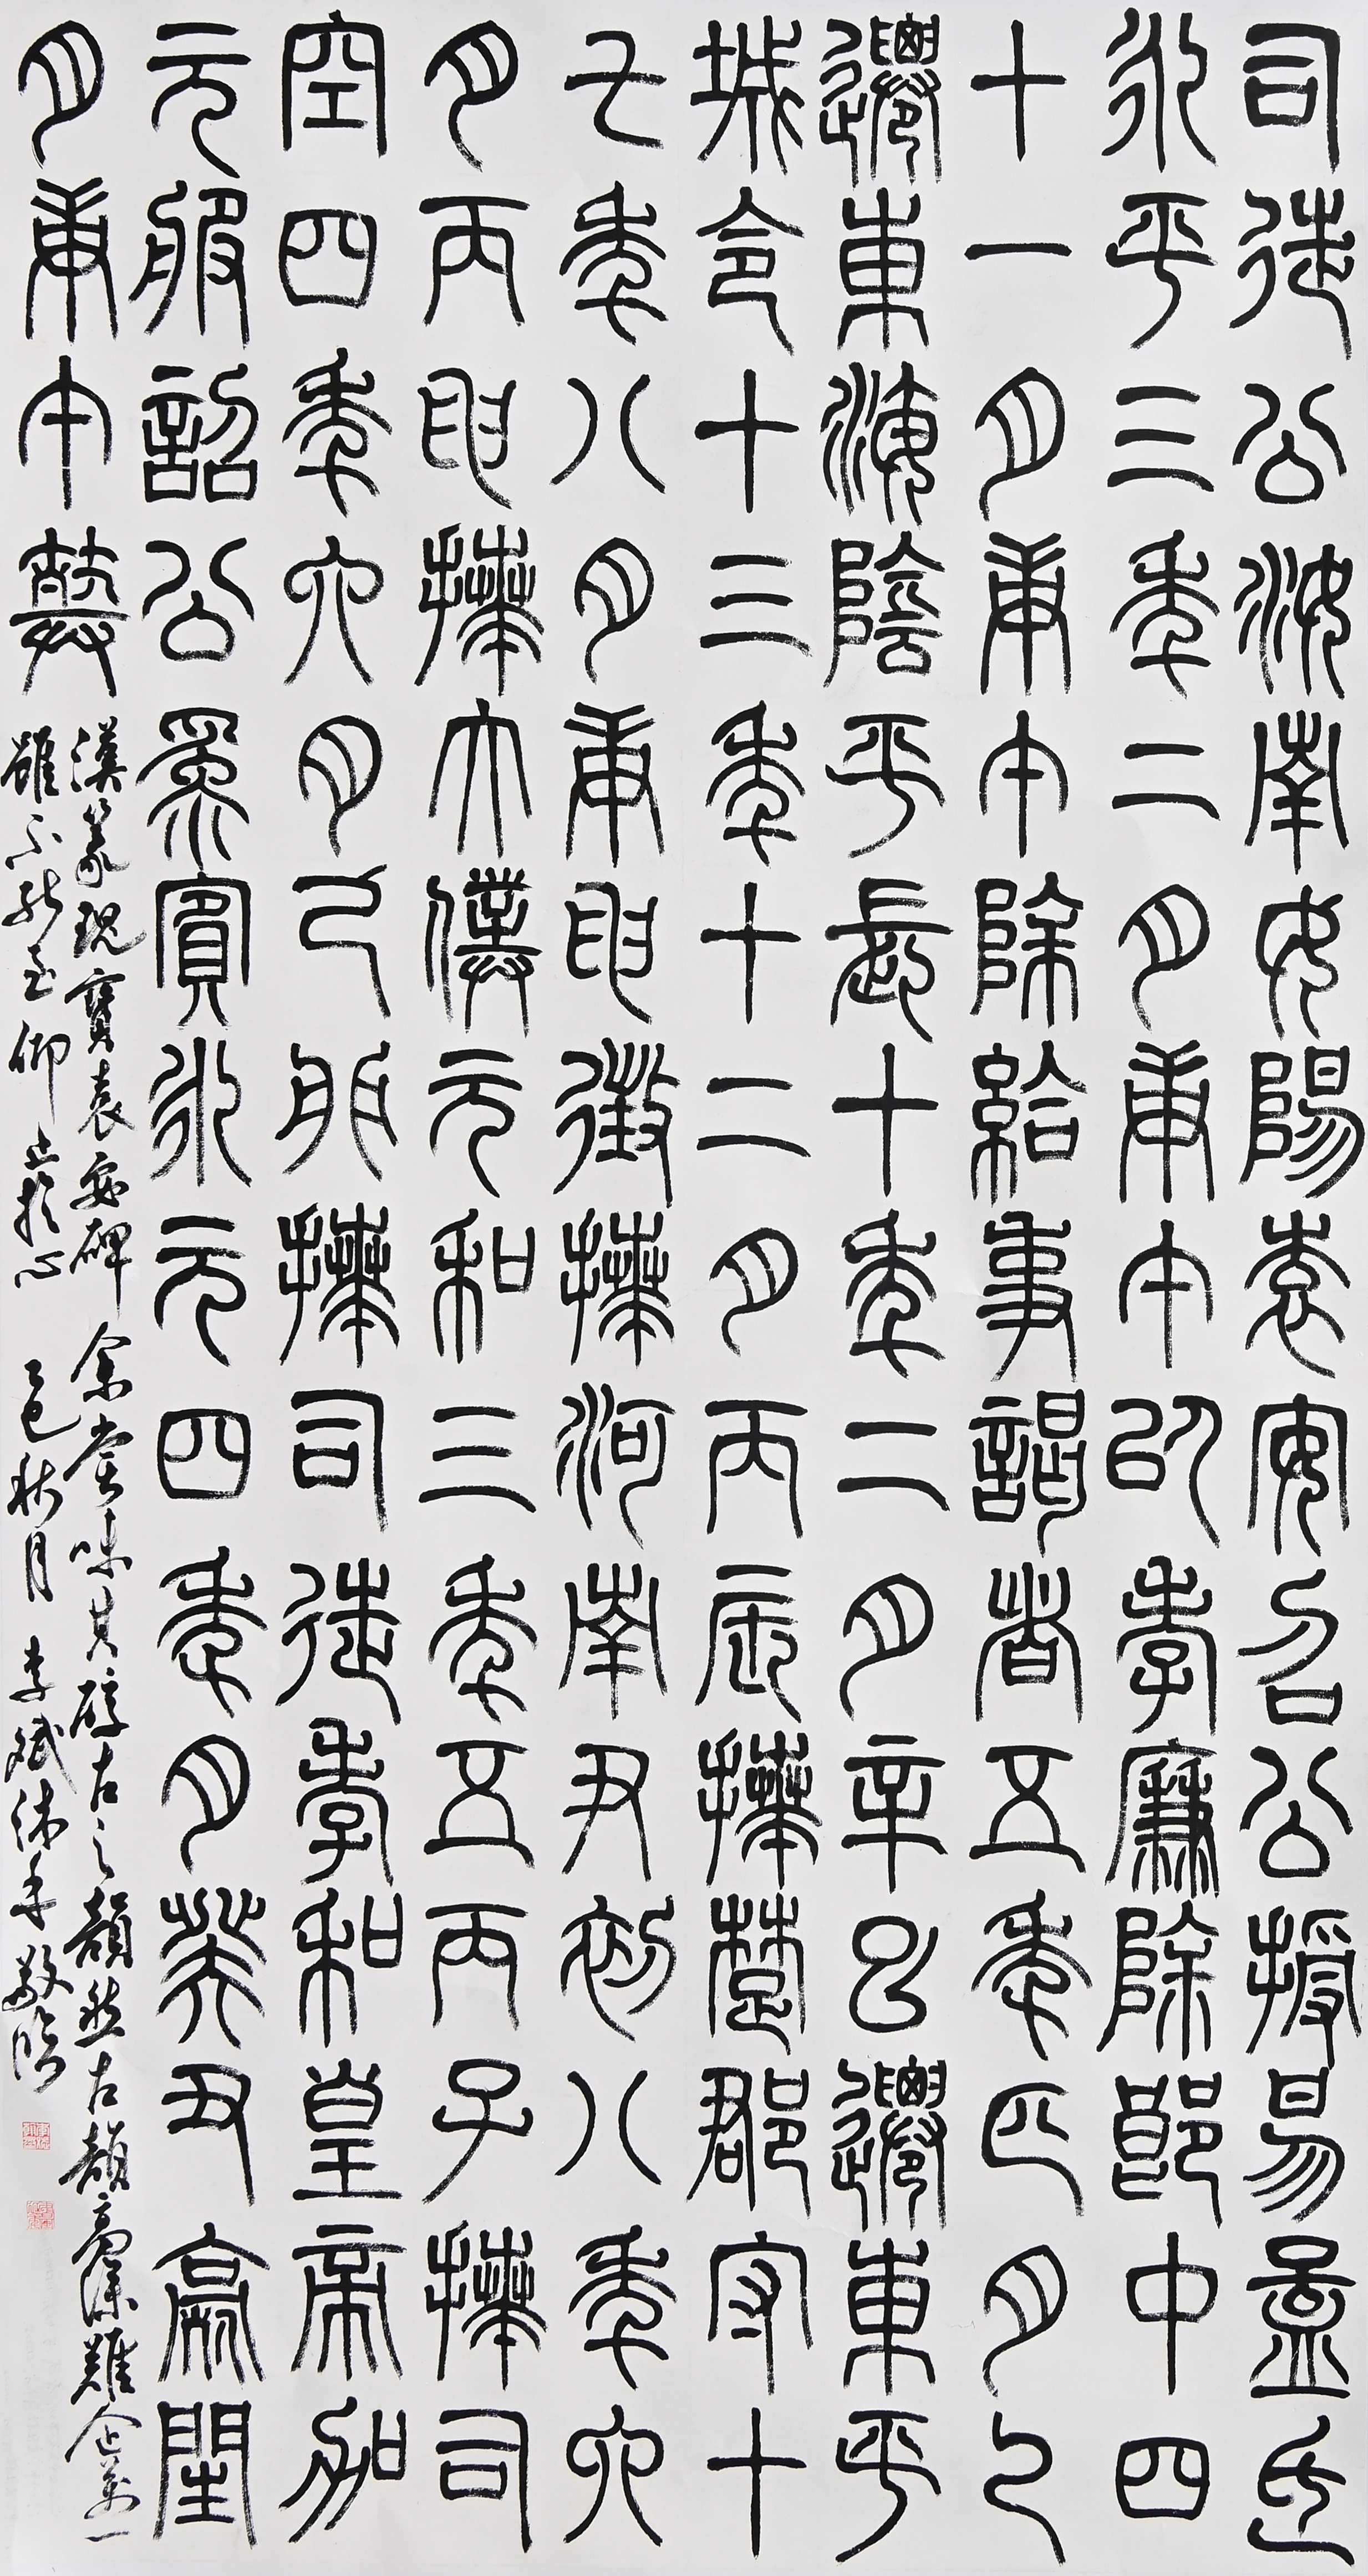 司徒公汝南女陽袁安召公授易孟氏
永平三年二月庚午以孝廉除郎中四
十一月庚午除給事謁者五年正月乙
遷東海陰平長十年二月辛巳遷東平
城令十三年十二月丙辰拜楚郡守十
七年八月庚申徵拜河南尹初八年六
月丙申拜太僕元和三年五丙子拜司
空四年六月己卯拜司徒孝和皇帝加
元服詔公為賓永元四年月癸丑薨閏
月庚午葬
漢篆瑰寶袁安碑 余嘗味其醇古之韻然古韻高深難企萬一
雖不能至仰止於心 乙巳秋月 李斌沐手敬臨